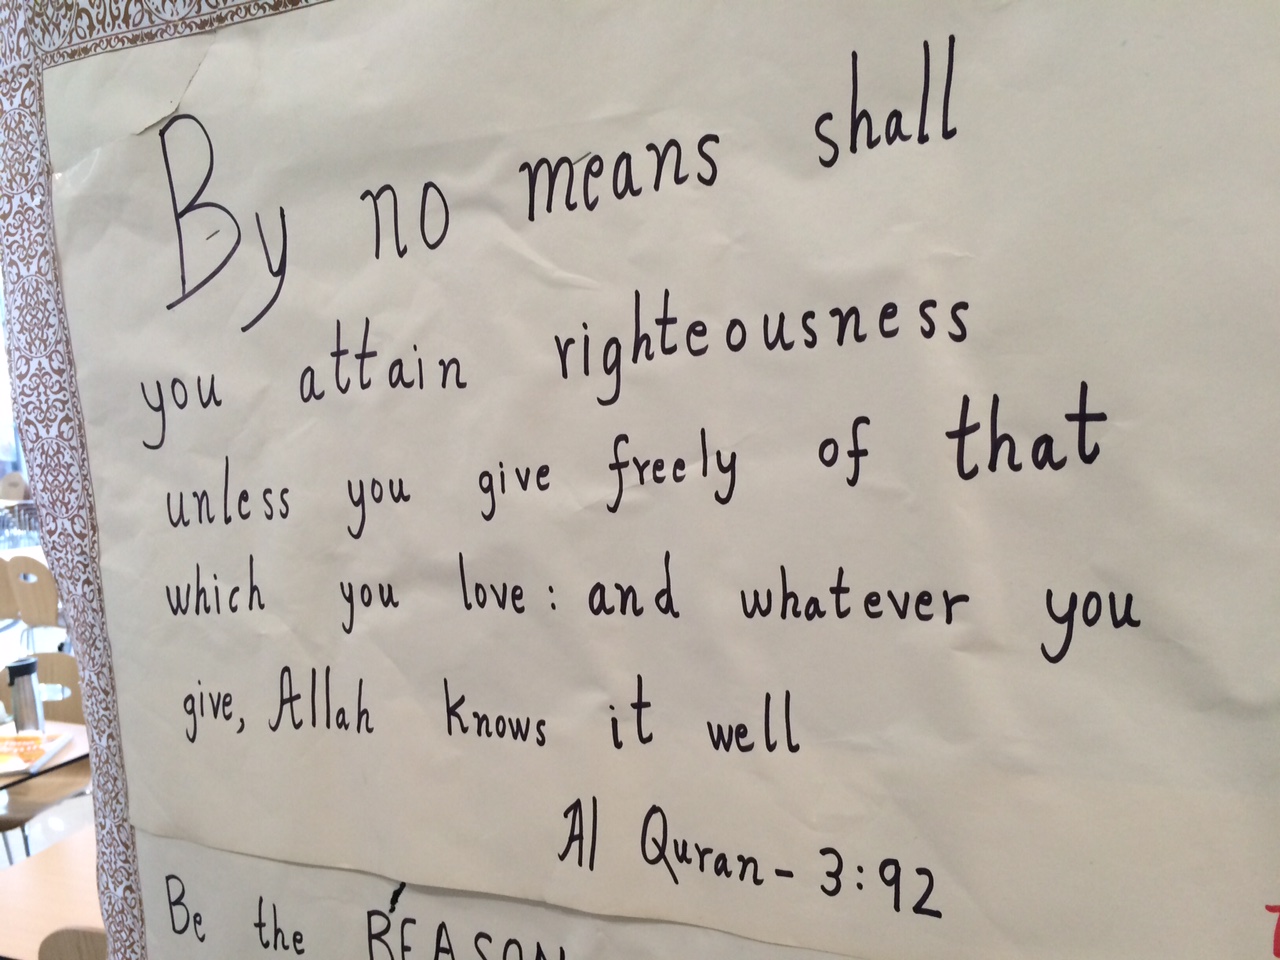 By no means shall
you attain righteousness
unless you give freely of that
which you love: and whatever you
give, Allah knows it well
Al Quran - 3:92
Be the REASON